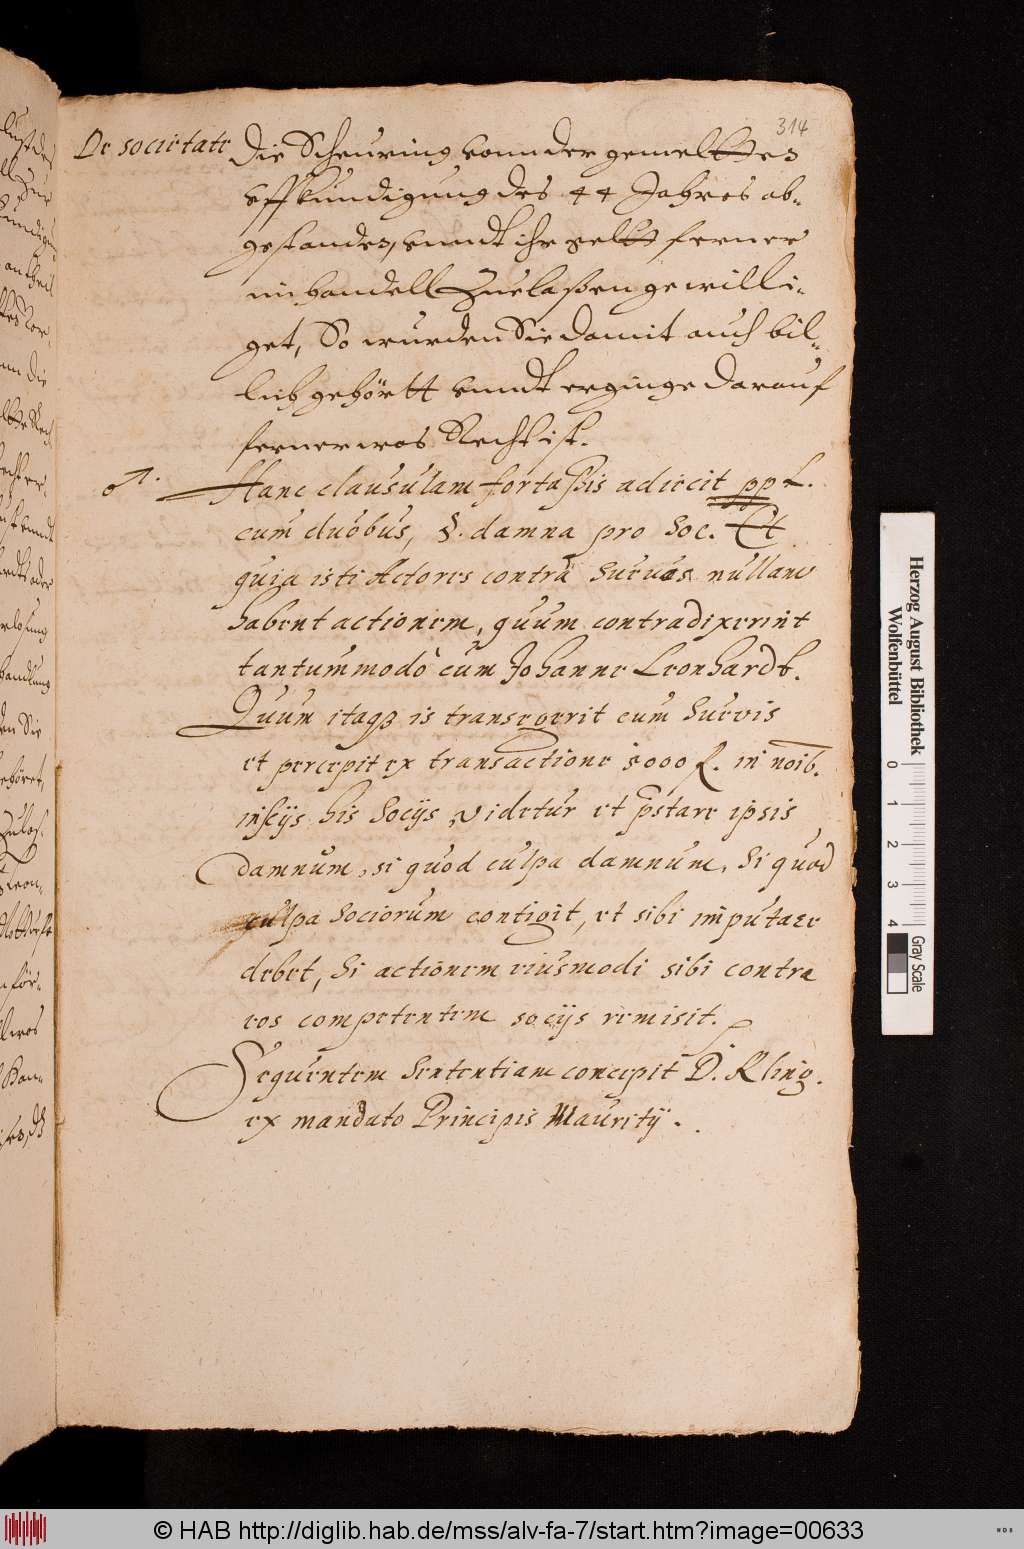 314
De societate
Die Scheuring vonn der gemeltten
Uffkundigung des 44 Jahres ab-
gestanden, unndt ihr gelltt ferner
im handell Zuelaßen gewilli-
get, So wurden Sie damit auch bil-
lich gehörtt unndt erginge darauf
ferner was Recht ist.
♂.
Hanc clausulam fortaßis adiecit pp L.
cum duobus, §. damna pro Soc. Et
quia isti Actores contra nullam
habent actionem, quum contradixerint
tantummodo cum Johanne Leonhardt.
Quum itaqz is transegerit cum
et perceperit ex transactione 5000 f. in noib.
inscijs his Socijs, videtur et pstare ipsis
damnum, si quod culpa damnum, Si quod
culpa Sociorum contigit, et sibi imputare
debet, Si actionem eiusmodi sibi contra
eos competentem socijs remisit.
Sequentem Sententiam concepit D. Kling.
ex mandato Principis Mauritij.
Herzog August Bibliothek
Wolfenbüttel
0 1 2 3 4
Gray Scale
© HAB http://diglib.hab.de/mss/alv-fa-7/start.htm?image=00633